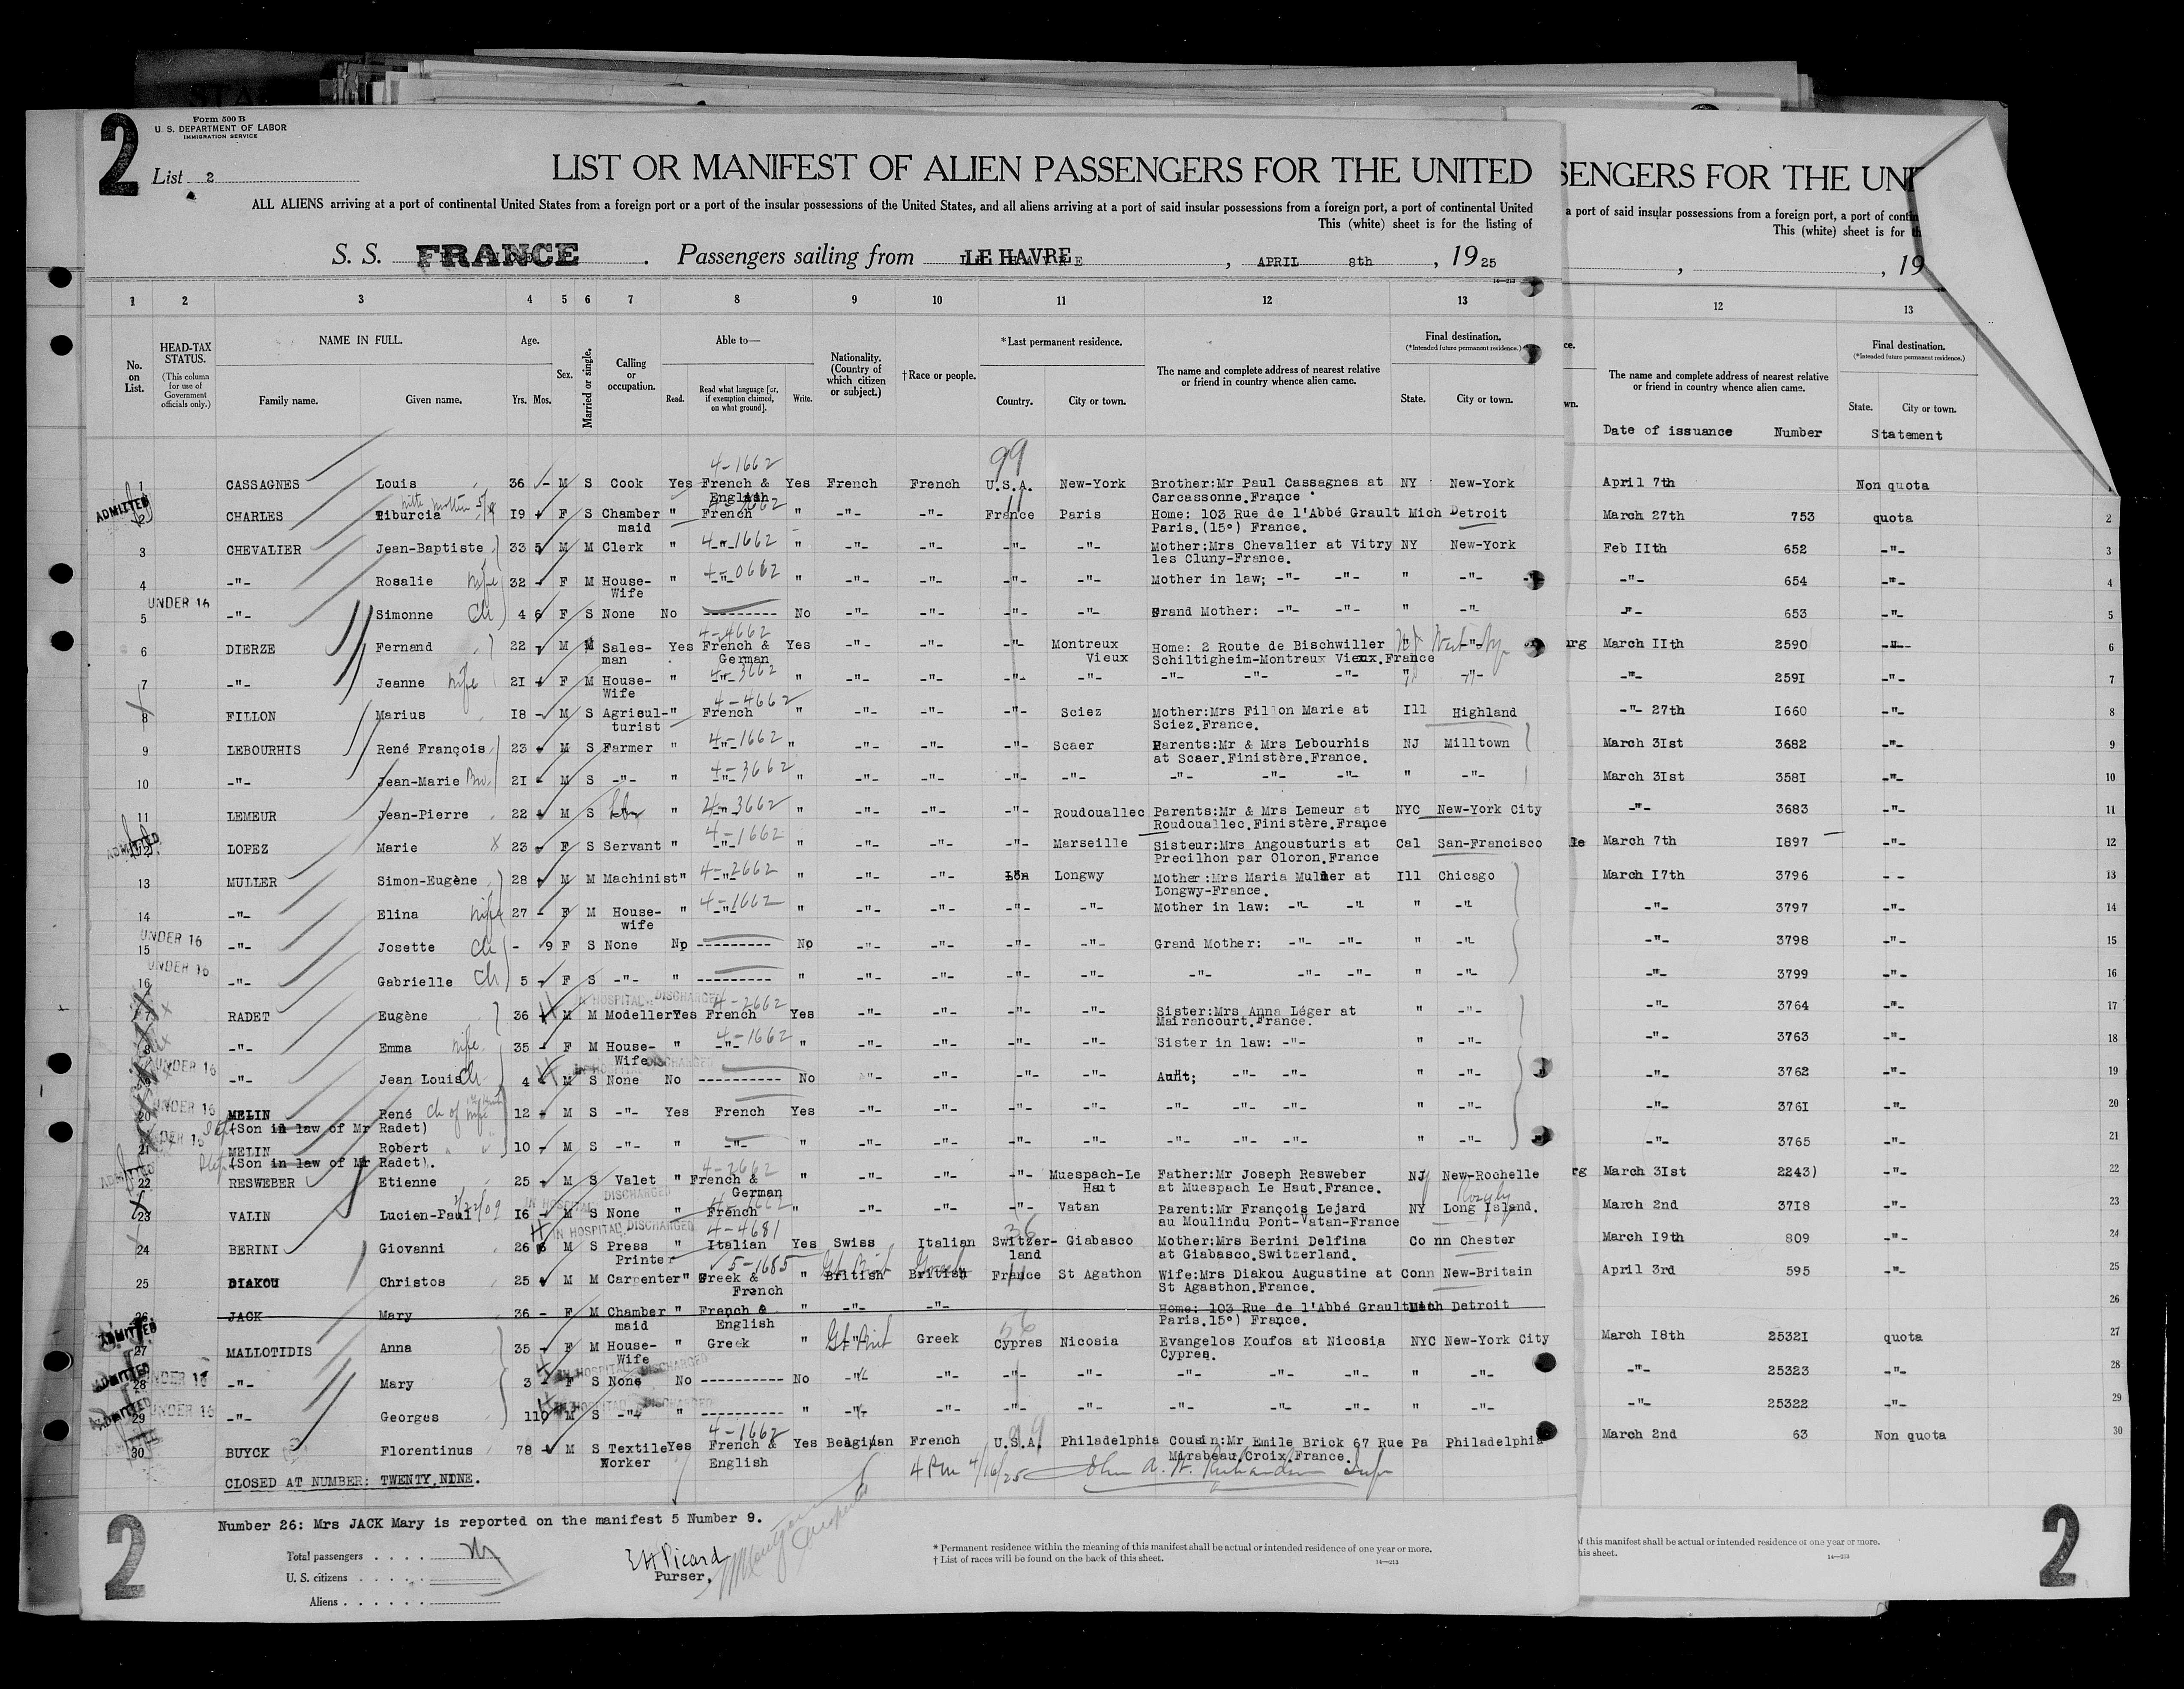 2
Form 500 B
U. S. DEPARTMENT OF LABOR
IMMIGRATION SERVICE
List 2
LIST OR MANIFEST OF ALIEN PASSENGERS FOR THE UNITED
ALL ALIENS arriving at a port of continental United States from a foreign port or a port of the insular possessions of the United States, and all aliens arriving at a port of said insular possessions from a foreign port, a port of continental United
This (white) sheet is for the listing of
S. S. FRANCE . Passengers sailing from LE HAVRE , APRIL 8th , 19 25
SENGERS FOR THE UNI
a port of said insular possessions from a foreign port, a port of contin
This (white) sheet is for th
, , 19
1 2 3 4 5 6 7 8 9 10 11 12 13 12 13
No. on List.
HEAD-TAX STATUS.
(This column for use of Government officials only.)
NAME IN FULL.
Family name. Given name.
Age.
Yrs. Mos.
Sex.
Married or single.
Calling or occupation.
Able to—
Read. Read what language [or, if exemption claimed, on what ground]. Write.
Nationality. (Country of which citizen or subject.)
†Race or people.
*Last permanent residence.
Country. City or town.
The name and complete address of nearest relative or friend in country whence alien came.
Final destination.
(*Intended future permanent residence.)
State. City or town.
ce.
wn.
The name and complete address of nearest relative or friend in country whence alien came.
Final destination.
(*Intended future permanent residence.)
State. City or town.
Date of issuance Number Statement
4-1662 99
1 CASSAGNES Louis 36 - M S Cook Yes French & Yes French French U.S.A. New-York Brother:Mr Paul Cassagnes at NY New-York April 7th Non quota
English Carcassonne.France
ADMITTED 2 CHARLES Tiburcia 19 F S Chamber " French " -"- -"- France Paris Home: 103 Rue de l'Abbé Grault Mich Detroit March 27th 753 quota 2
maid Paris.(15°) France.
3 CHEVALIER Jean-Baptiste 33 5 M M Clerk " -"- 4-1662 " -"- -"- -"- -"- Mother:Mrs Chevalier at Vitry NY New-York Feb IIth 652 -"- 3
les Cluny-France.
4 -"- Rosalie wife 32 - F M House- " -"- 4-0662 " -"- -"- -"- -"- Mother in law; -"- -"- " -"- -"- 654 -"- 4
Wife
UNDER 16
5 -"- Simonne Ch 4 6 F S None No ---------- No -"- -"- -"- -"- Grand Mother: -"- -"- " -"- -"- 653 -"- 5
4-4662
6 DIERZE Fernand 22 - M M Sales- Yes French & Yes -"- -"- -"- Montreux Home: 2 Route de Bischwiller urg March IIth 2590 -"- 6
man German Vieux Schiltigheim-Montreux Vieux.France
7 -"- Jeanne wife 2I - F M House- " -"- 4-3662 " -"- -"- -"- -"- -"- -"- -"- " -"- -"- 259I -"- 7
Wife
4-4662
8 FILLON Marius I8 - M S Agricul-" French " -"- -"- -"- Sciez Mother:Mrs Fillon Marie at Ill Highland -"- 27th I660 -"- 8
turist Sciez.France.
9 LEBOURHIS René François 23 - M S Farmer " -"- 4-1662 " -"- -"- -"- Scaer Parents:Mr & Mrs Lebourhis NJ Milltown March 3Ist 3682 -"- 9
at Scaer.Finistère.France.
10 -"- Jean-Marie Bro. 2I - M S -"- " -"- 4-3662 " -"- -"- -"- -"- -"- -"- -"- " -"- March 3Ist 358I -"- 10
11 LEMEUR Jean-Pierre 22 - M S " -"- 3662 " -"- -"- -"- Roudouallec Parents:Mr & Mrs Lemeur at NYC New-York City -"- 3683 -"- 11
Roudouallec.Finistère.France
ADMITTED 12 LOPEZ Marie X 23 - F S Servant " -"- 4-1662 " -"- -"- -"- Marseille Sisteur:Mrs Angousturis at Cal San-Francisco le March 7th I897 -"- 12
Precilhon par Oloron.France
13 MULLER Simon-Eugène 28 - M M Machinist" -"- 4-2662 " -"- -"- Longwy Mother:Mrs Maria Muller at Ill Chicago March I7th 3796 - - 13
Longwy-France.
14 -"- Elina wife 27 - F M House- " -"- 4-1662 " -"- -"- -"- -"- Mother in law: -"- -"- " -"- -"- 3797 -"- 14
wife
UNDER 16
15 -"- Josette Ch - 9 F S None No ---------- No -"- -"- -"- -"- Grand Mother: -"- -"- " -"- -"- 3798 -"- 15
UNDER 16
16 -"- Gabrielle Ch 5 - F S -"- " ---------- " -"- -"- -"- -"- -"- -"- -"- " -"- -"- 3799 -"- 16
IN HOSPITAL. DISCHARGED 4-2662
17 RADET Eugène 36 - M M Modeller Yes French Yes -"- -"- -"- -"- Sister:Mrs Anna Léger at " -"- -"- 3764 -"- 17
Mairancourt.France.
18 -"- Emma wife 35 - F M House- " -"- 4-1662 -"- -"- -"- -"- Sister in law: -"- " -"- -"- 3763 -"- 18
Wife
UNDER 16 IN HOSPITAL DISCHARGED
19 -"- Jean Louis Ch 4 - M S None No ---------- No -"- -"- -"- -"- Aunt; -"- -"- " -"- -"- 3762 -"- 19
UNDER 16
20 MELIN René Ch of wife 12 - M S -"- Yes French Yes -"- -"- -"- -"- -"- -"- -"- " -"- -"- 376I -"- 20
(Son in law of Mr Radet)
UNDER 16
21 MELIN Robert 10 - M S -"- " -"- " -"- -"- -"- -"- -"- -"- -"- " -"- -"- 3765 -"- 21
(Son in law of Mr Radet).
ADMITTED 22 RESWEBER Etienne 25 - M S Valet " French & -"- -"- -"- Muespach-Le Father:Mr Joseph Resweber NJ New-Rochelle rg March 3Ist 2243) -"- 22
German Haut at Muespach Le Haut.France.
IN HOSPITAL DISCHARGED
23 VALIN Lucien-Paul I6 - M S None " French " -"- -"- -"- Vatan Parent:Mr François Lejard NY Long Island. March 2nd 37I8 -"- 23
au Moulindu Pont-Vatan-France
IN HOSPITAL. DISCHARGED 4-4681 36
24 BERINI Giovanni 26 6 M S Press " Italian Yes Swiss Italian Switzer- Giabasco Mother:Mrs Berini Delfina Conn Chester March I9th 809 -"- 24
Printer land at Giabasco.Switzerland.
5-1685
25 DIAKOU Christos 25 - M M Carpenter" Greek & " British British France St Agathon Wife:Mrs Diakou Augustine at Conn New-Britain April 3rd 595 -"- 25
French St Agasthon.France.
26 JACK Mary 36 - F M Chamber " French & " -"- -"- Home: 103 Rue de l'Abbé Grault Mich Detroit 26
maid English Paris.15°) France.
ADMITTED 27 MALLOTIDIS Anna 35 - F M House- " Greek " Gt Brit Greek Cypres Nicosia Evangelos Koufos at Nicosia NYC New-York City March I8th 2532I quota 27
Wife Cypres.
ADMITTED UNDER 16 IN HOSPITAL DISCHARGED
28 -"- Mary 3 - F S None No ---------- No -"- -"- -"- -"- -"- -"- -"- " -"- -"- 25323 -"- 28
ADMITTED UNDER 16 IN HOSPITAL DISCHARGED
29 -"- Georges 1 10 M S -"- " ---------- " -"- -"- -"- -"- -"- -"- -"- " -"- -"- 25322 -"- 29
4-1662 99
30 BUYCK Florentinus 78 - M S Textile Yes French & Yes Belgian French U.S.A. Philadelphia Cousin:Mr Emile Brick 67 Rue Pa Philadelphia March 2nd 63 Non quota 30
Worker English Mirabeau.Croix.France.
CLOSED AT NUMBER: TWENTY,NINE. 4 PM 4/16/25 John A. W. Richardson Insp
Number 26: Mrs JACK Mary is reported on the manifest 5 Number 9.
Total passengers . . . .
U. S. citizens . . . . .
Aliens . . . . . .
EH Picard
Purser.
* Permanent residence within the meaning of this manifest shall be actual or intended residence of one year or more.
† List of races will be found on the back of this sheet.
14—213
2
of this manifest shall be actual or intended residence of one year or more.
his sheet.
14—213
2